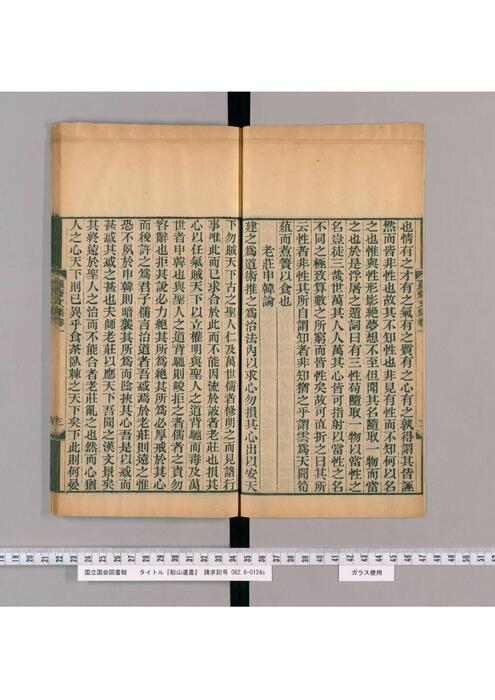 也情有之才有之氣有之質有之心有之孰得謂其皆誣
然而皆非性也故其不知性也非見有性而不知何以名
之也惟與性形影絶夢想不至但聞其名隨取一物而當
之也於是浮屠之遁詞曰有三性苟隨取一物以當性之
名豈徒三哉世萬其人人萬其心皆可指射以當性之名
不同之極致算數之所窮而皆性矣故可直折之曰其所
云性者非性其所自謂知者非知猶之乎謂雲爲天聞筍
葅而煮簀以食也
老莊申韓論
建之爲道術推之爲治法內以求心勿損其心出以安天
下勿賊天下古之聖人仁及萬世儒者修明之而見諸行
事唯此而已求合於此而不能因流於詖者老莊也損其
心以任氣賊天下以立權明與聖人之道背馳而毒及萬
世者申韓也與聖人之道背馳則峻拒之者儒者之責勿
容辭也拒其說必力絶其所爲絶其所爲必厚戒於其心
而後許之爲君子儒言治道者吾惑焉於老莊則遠之惟
恐不夙於申韓則暗襲其所爲而陰挾其心吾是以惑而
甚惑其惑之甚也夫師老莊以應天下吾聞之漢文景矣
其終遠於聖人之治而不能合者老莊亂之也然而心猶
人之心天下則已異乎食荼臥棘之天下矣下此則何晏
国立国会図書館 タイトル『船山遺書』 請求記号 082.6-0124s
ガラス使用